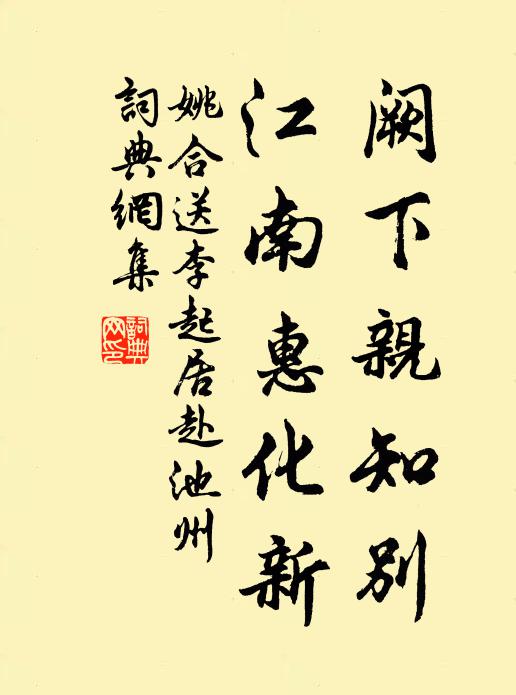 阙下親知别
江南惠化新
姚合送李起居赴池州
詞典網集
詞典网印